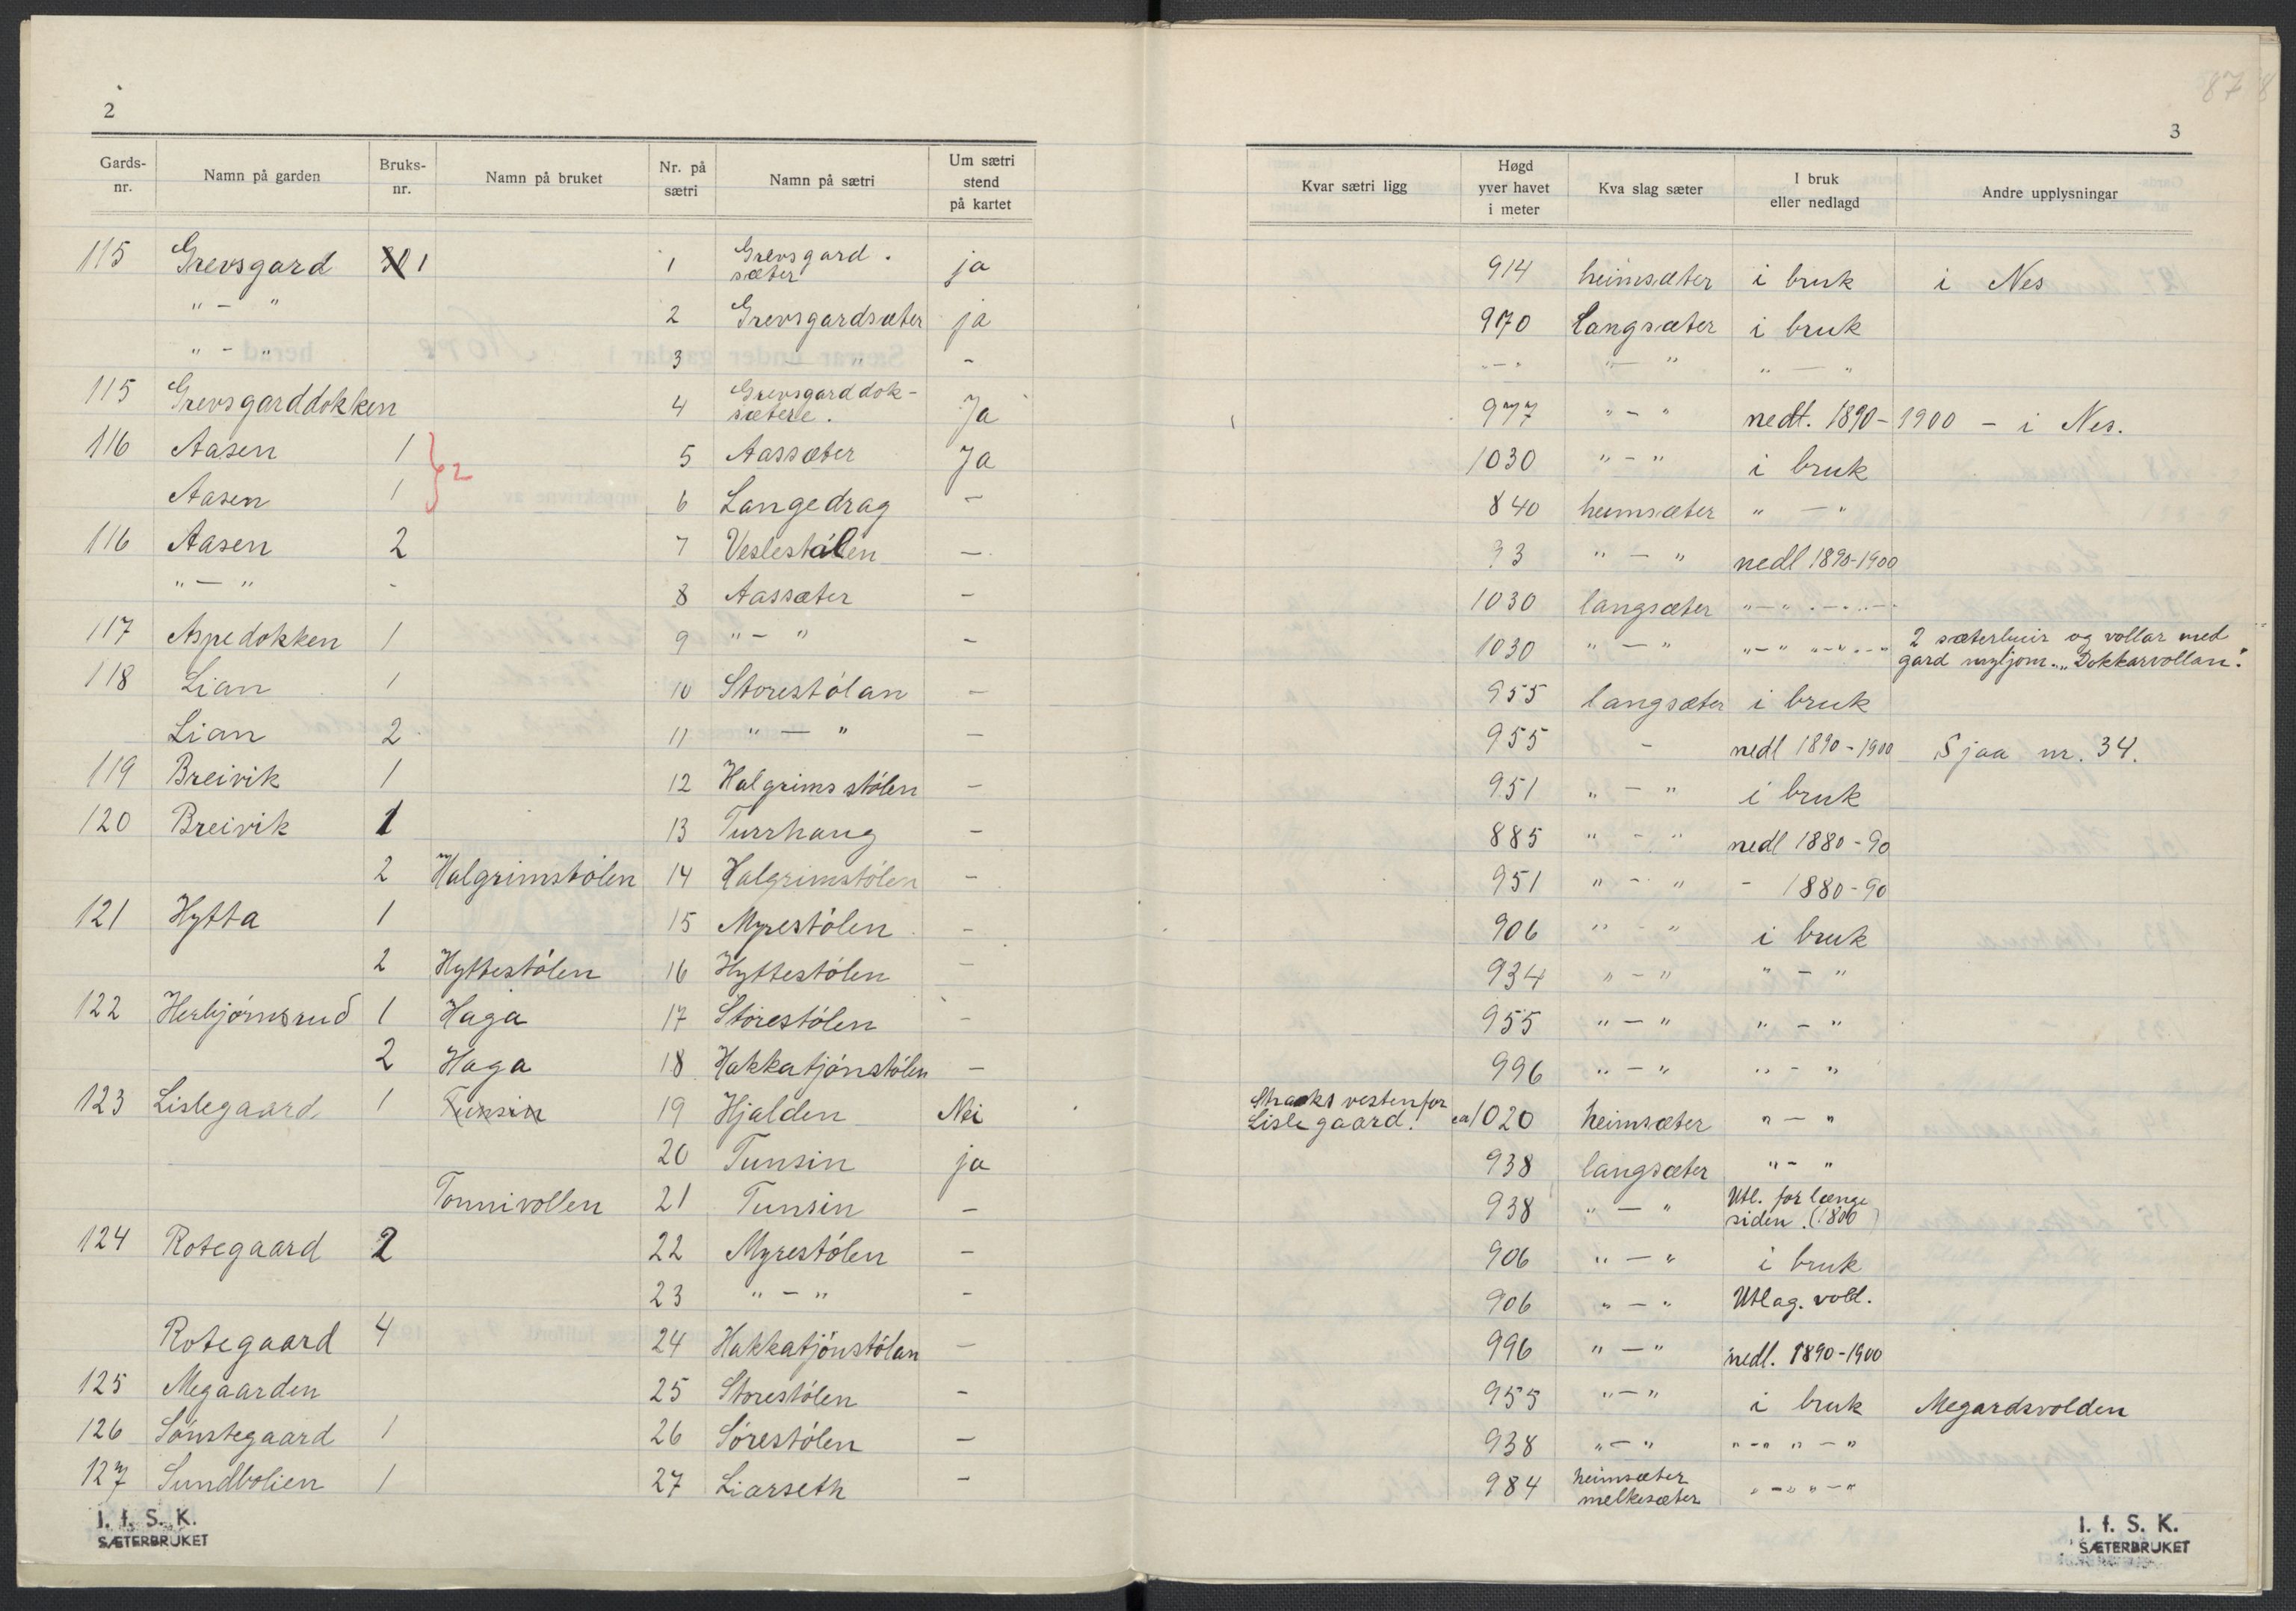 2
Gards-nr. | Namn på garden | Bruks-nr. | Namn på bruket | Nr. på sætri | Namn på sætri | Um sætri stend på kartet
115 Grevsgard 1 1 Grevsgard. sæter ja
" - " 2 Grevsgardsæter ja
" - " 3 - " -
115 Grevsgarddokken 4 Grevsgarddok-sætere. Ja
116 Aasen 1 } 2 5 Aassæter Ja
Aasen 1 6 Langedrag -
116 Aasen 2 7 Veslestølen -
" - " - 8 Aassæter -
117 Aspedokken 1 9 " - " -
118 Lian 1 10 Storestólan -
Lian 2 11 " - " -
119 Breivik 1 12 Halgrimsstólen -
120 Breivik 1 13 Turrhaug -
2 Halgrimstólen 14 Halgrimstólen -
121 Hytta 1 15 Myrestólen -
2 Hyttestólen 16 Hyttestólen -
122 Herbjórnsrud 1 Haga 17 Storestólen -
2 Haga 18 Hakkatjónstólen -
123 Lislegaard 1 Tunsin 19 Hjalden Nei
20 Tunsin ja
Tonnivollen 21 Tunsin -
124 Rotegaard 2 22 Myrestólen -
23 " - " -
Rotegaard 4 24 Hakkatjónstólan -
125 Megaarden 25 Storestólen -
126 Sónstegaard 1 26 Sórestólen -
127 Sundbolien 1 27 Liarseth -
I. f. S. K.
SÆTERBRUKET
87 8
3
Kvar sætri ligg | Høgd yver havet i meter | Kva slag sæter | I bruk eller nedlagd | Andre upplysningar
914 heimsæter i bruk i Nes
970 Langsæter i bruk
" - " " - " " - "
977 " - " nedl. 1890-1900 - i Nes.
1030 " - " i bruk
840 heimsæter " - "
" - " nedl 1890-1900
1030 langsæter " - " - " -
1030 " - " " - " " - " - " 2 sæterbuir og vollar med
gard myljom. "Dokkarvollan".
955 langsæter i bruk
955 - nedl 1890-1900 Sjaa nr. 34.
951 " - " i bruk
885 " - " nedl 1880-90
951 " - " - 1880-90
906 " - " i bruk
934 " - " " - "
955 " - " " - "
996 " - " " - "
Straks vestenfor
Lislegaard. ca 1020 heimsæter " - "
938 langsæter " - "
938 " - " Utl. for længe
siden. (1800)
906 " - " i bruk
906 " - " Utlag. vold.
996 " - " nedl. 1890-1900
955 " - " i bruk Megardsvolden
938 " - " " - " " - "
984 heimsæter
melkesæter " - " " - "
I. f. S. K.
SÆTERBRUKET